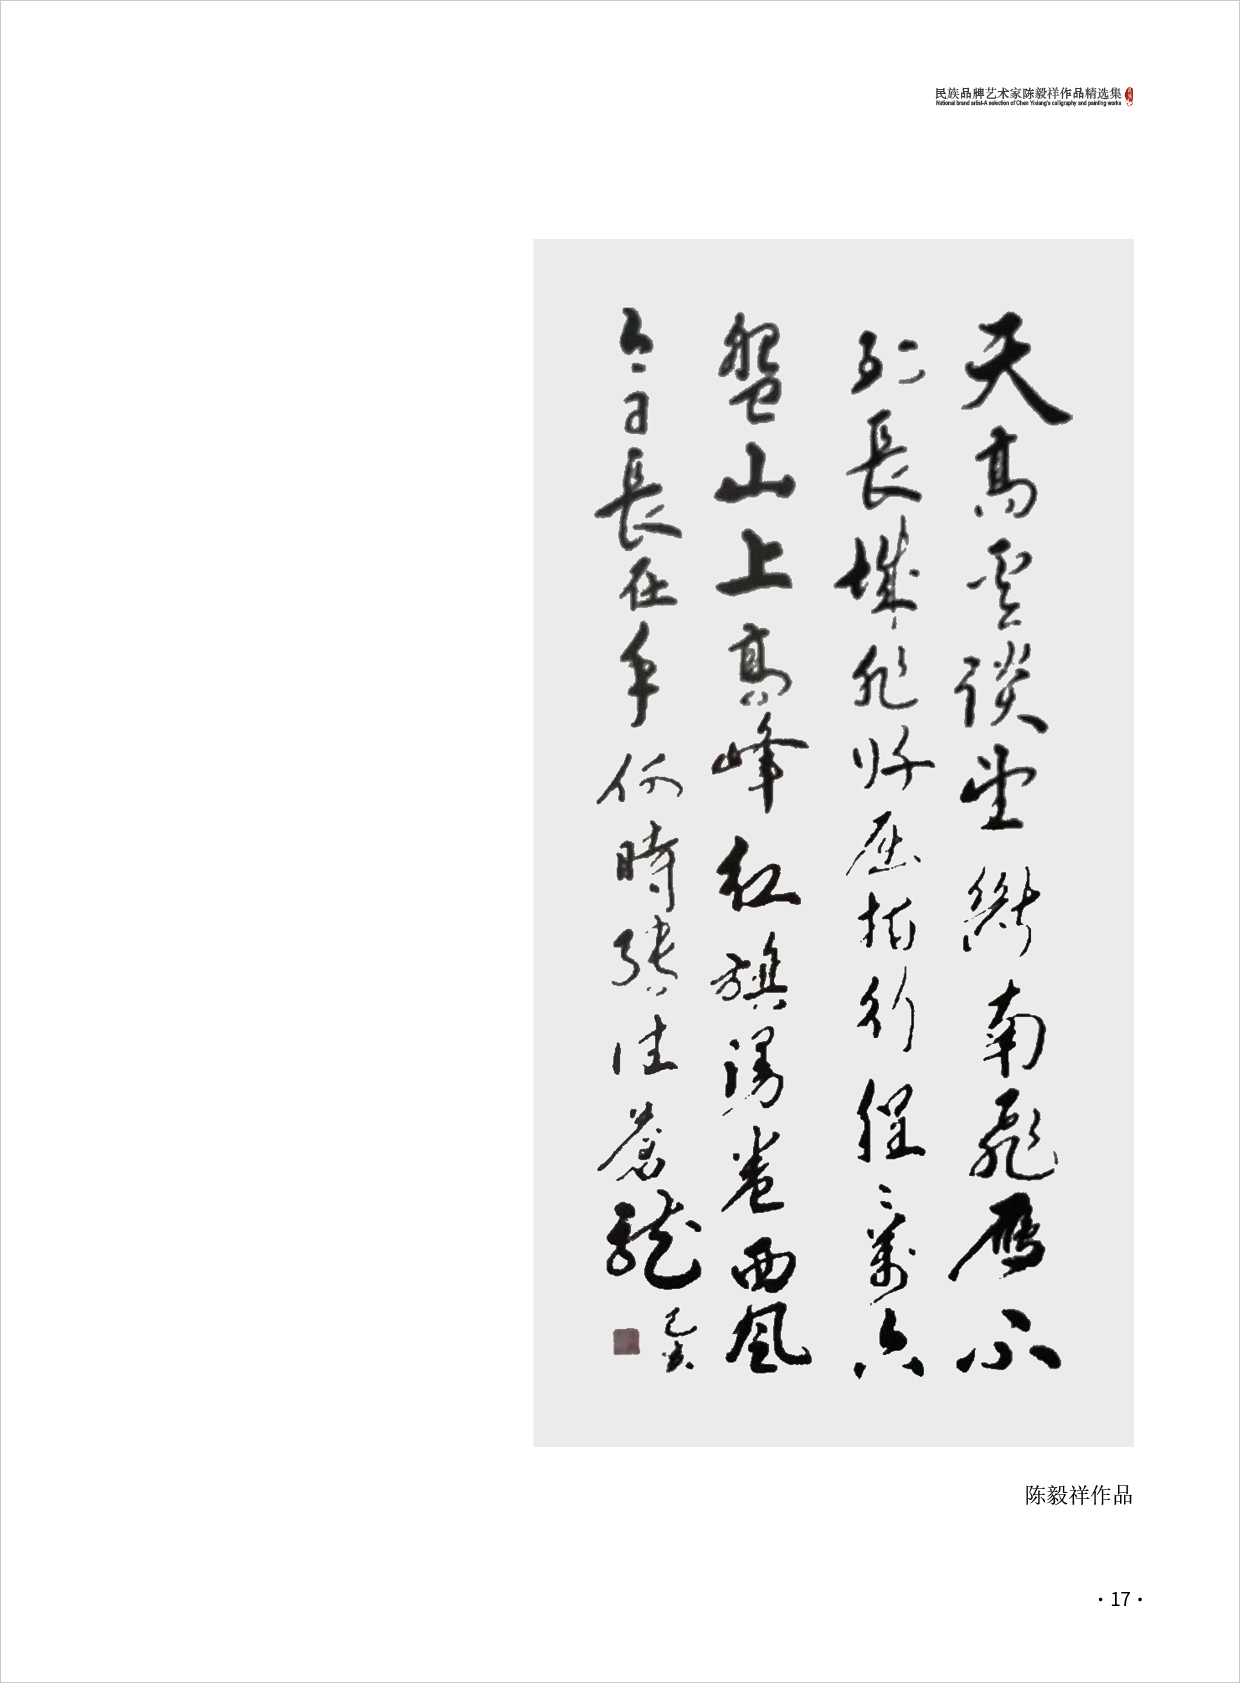 民族品牌艺术家陈毅祥作品精选集
National brand artist-A selection of Chen Yixiang's calligraphy and painting works
天高雲淡望斷南飛雁不
到長城非好屈指行程二萬六
盤山上高峰紅旗漫卷西風
今日長在手何時縛住蒼龍
己亥
陈毅祥作品
·17·